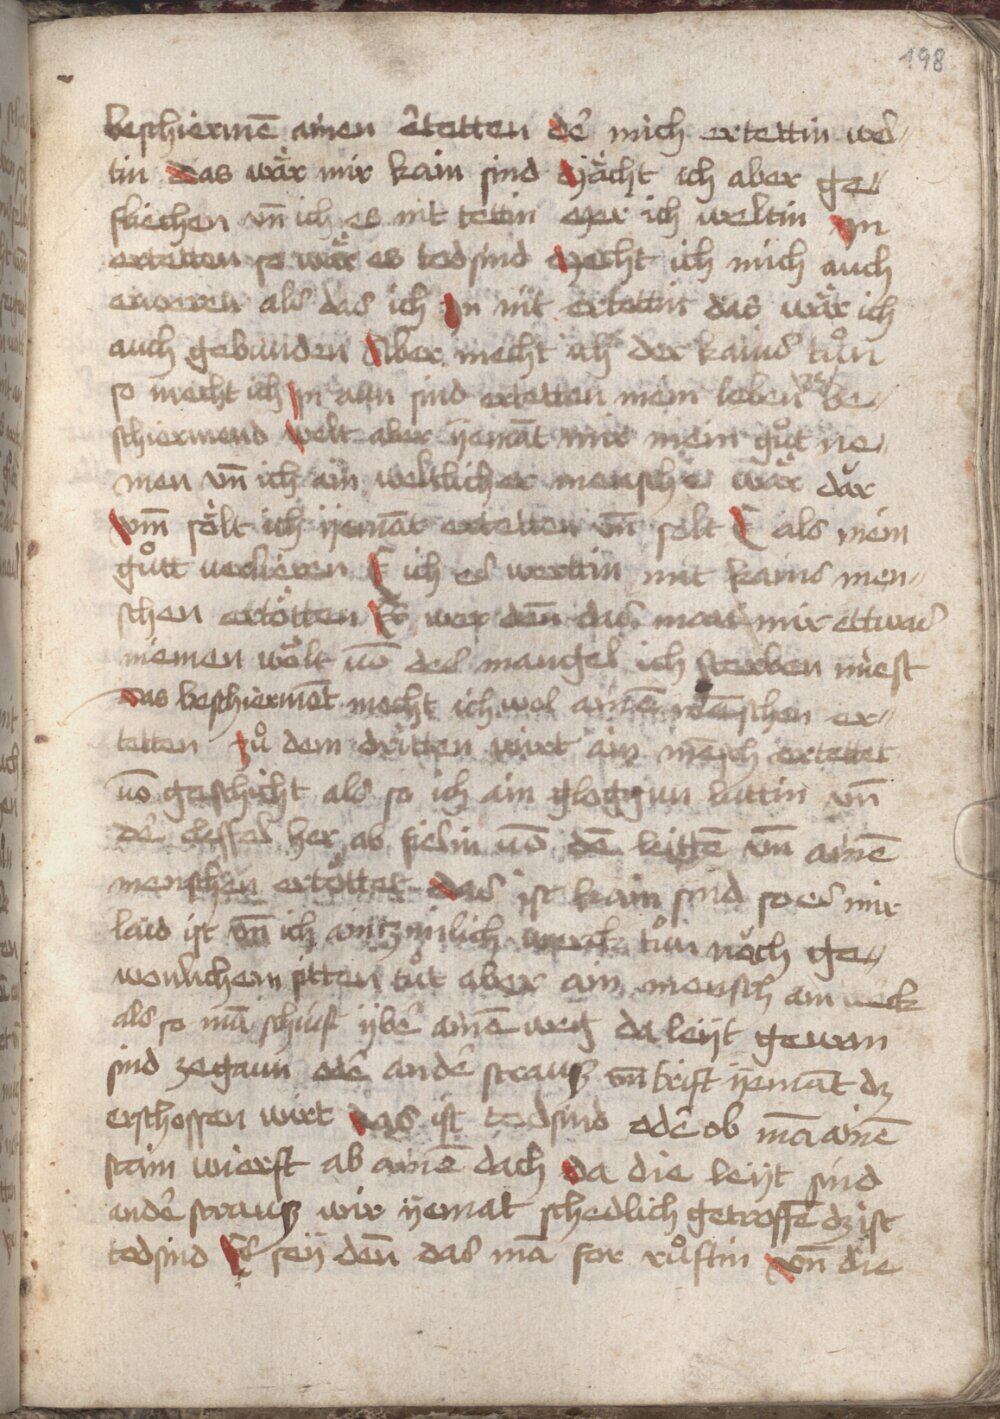 198
beschiermē ainen ertetten dē mich ertettin wel-
tin das wär mir kain sind Mächt ich aber ge-
fliechen vn̄ ich es nit tettin eyer ich weltin In
ertetten so wär es todsind Mecht ich mich auch
erweren als das ich In nit ertettin das wär ich
auch gebunden Aber mecht ich der kains tůn
so mecht ich In aun sind ertetten mein leben ze be-
schiermend Welt aber yemāt mir mein gůt ne-
men vn̄ ich ain weltlicher mensche wär dar
vm̄ sölt ich yemāt ertetten vn̄ solt E als mein
gůtt verlieren E ich es werttin mit kains men-
schen ertötten Es wer den̄ das man mir ettwas
niemen wölt vō des mangel ich sterben miest
das beschiermēt mecht ich wol ainē menschen er-
tetten Zů dem dritten wirt ain mēsch ertettet
vō geschicht als so ich ain gloggun luttin vn̄
dē cleffel her ab fielin vō dē littē vn̄ ainē
menschen ertöttet das ist kain sind so es mir
laid ist vn̄ ich aintzinlich werck tůn nach ge-
wonlichem sitten tůt aber ain mensch ain werck
als so mā schust yber ainē weg da leyt gewon
sind ze gaun odē andē strauß vn̄ trift yemāt dz
erschossen wirt das ist todsind odē ob mā ainē
stain wierft ab ainē dach da die leyt sind
andē strauß wir yemat schedlich getroffē dz ist
todsind Es sey den̄ das mā for růftin vn̄ die